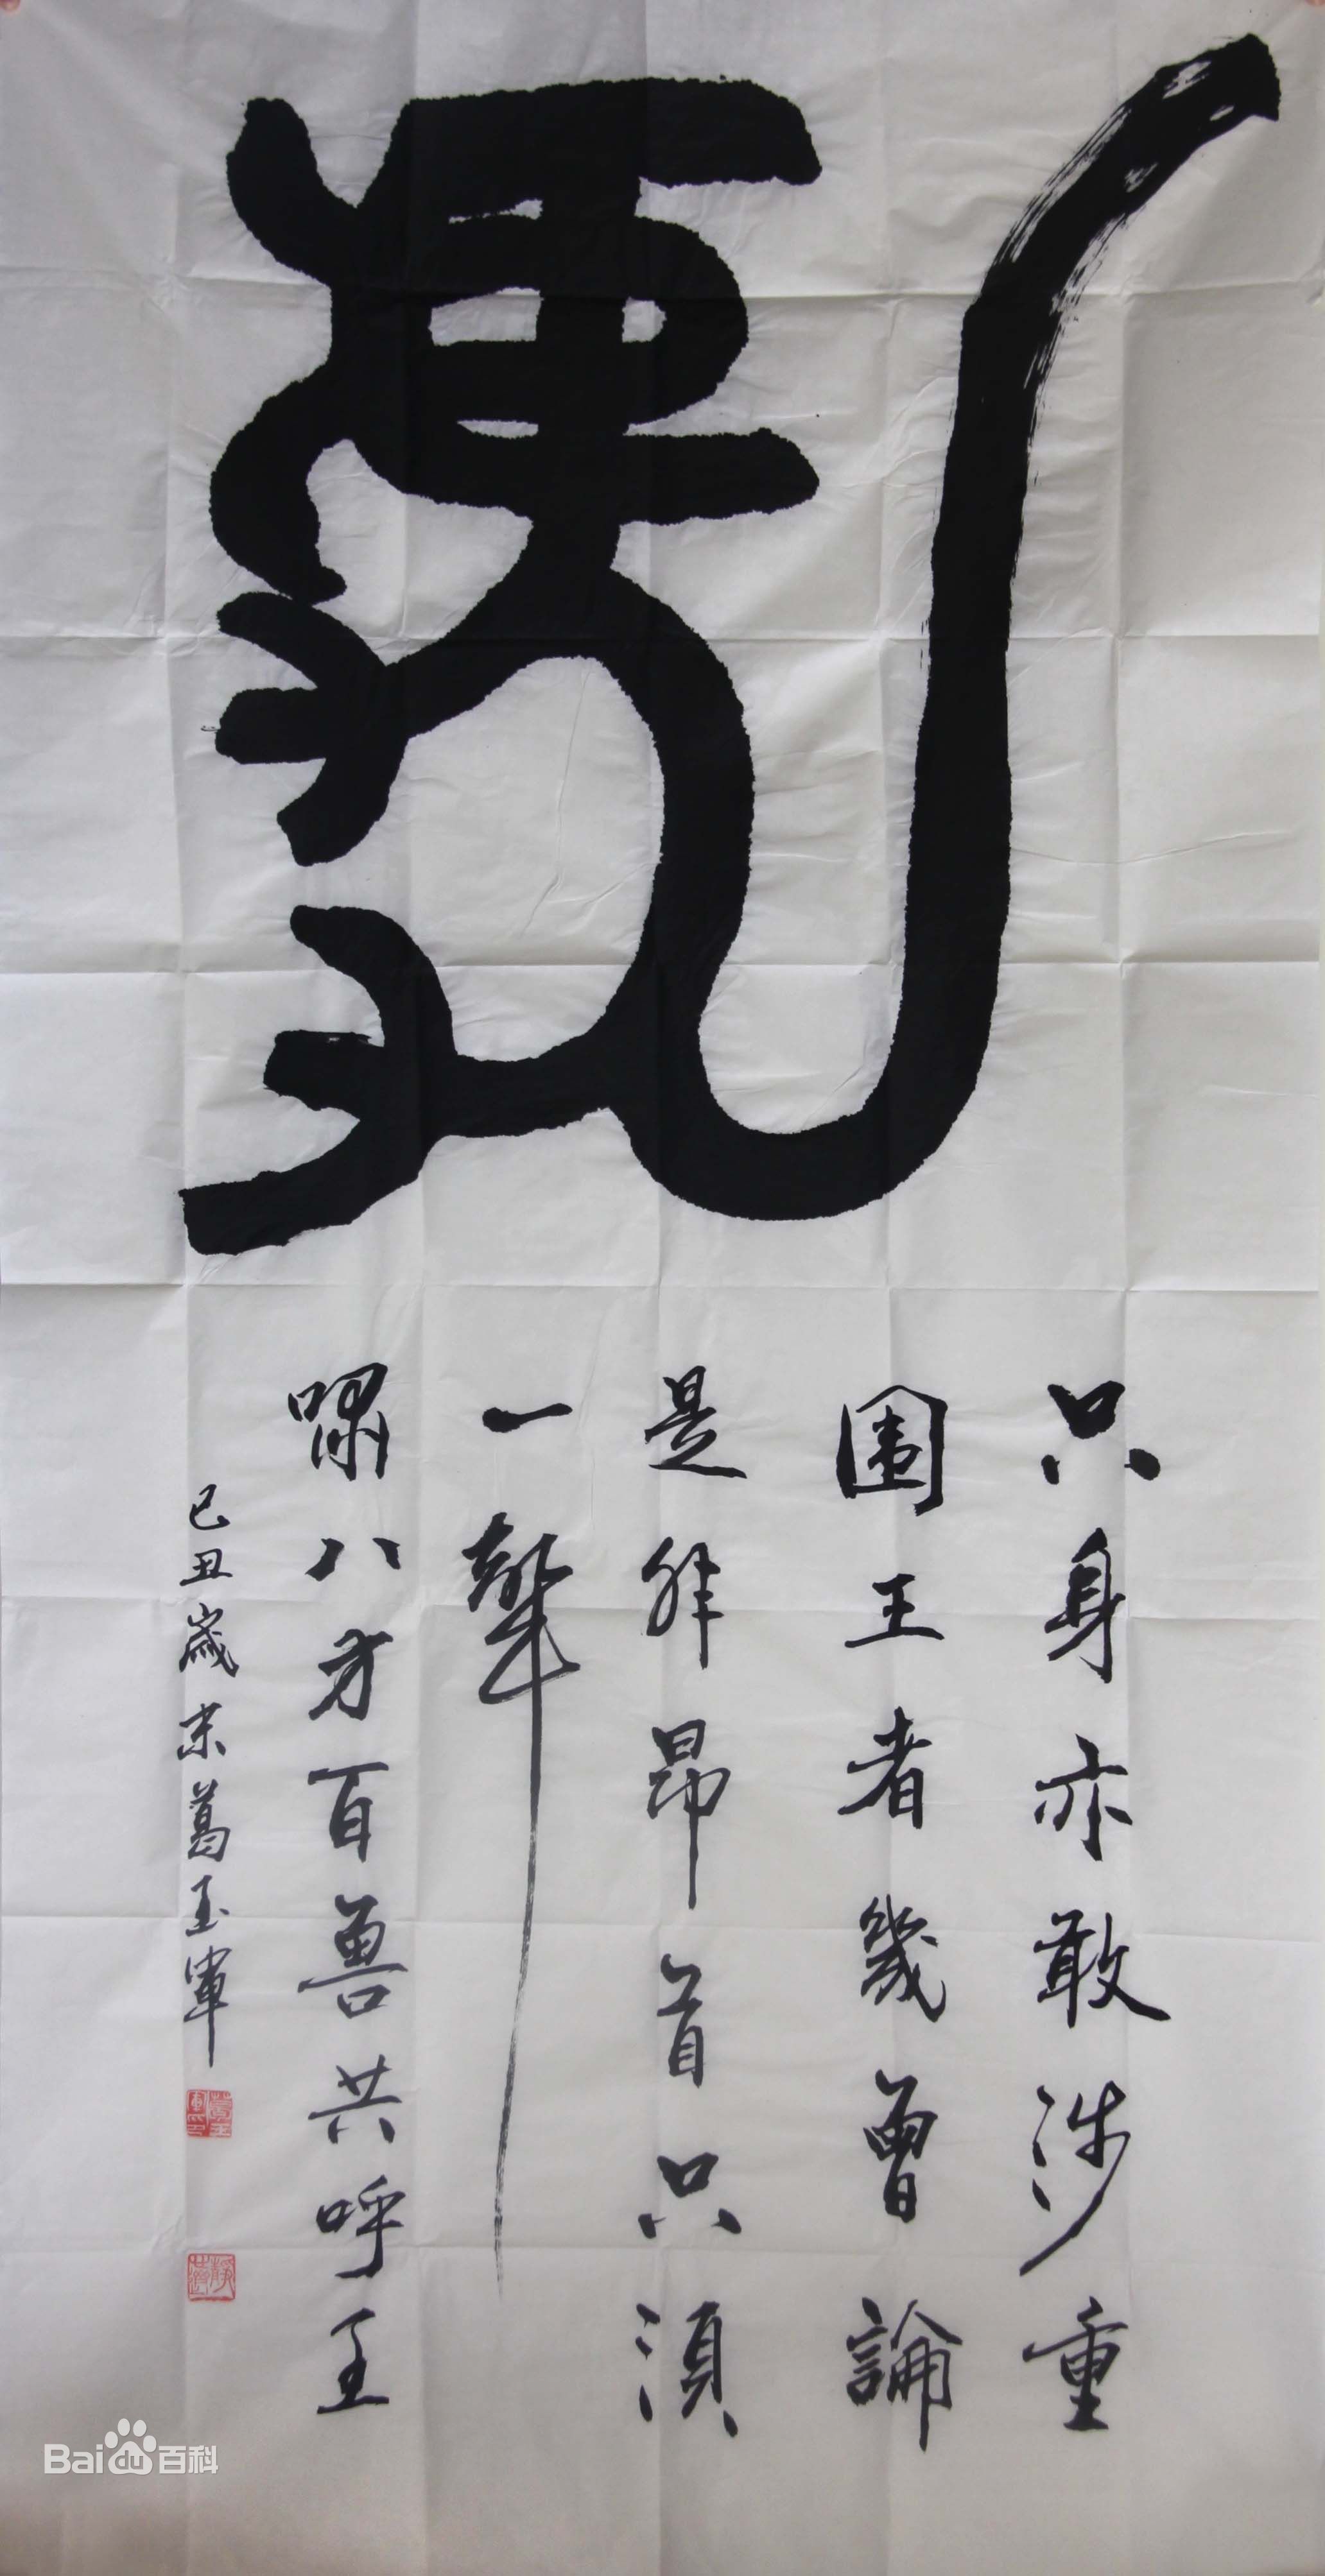 虎
只身亦敢涉重
围王者幾曾論
是非昂首只須
一聲
嘯八方百兽共呼王
己丑歲末葛玉軍
Bai du 百科